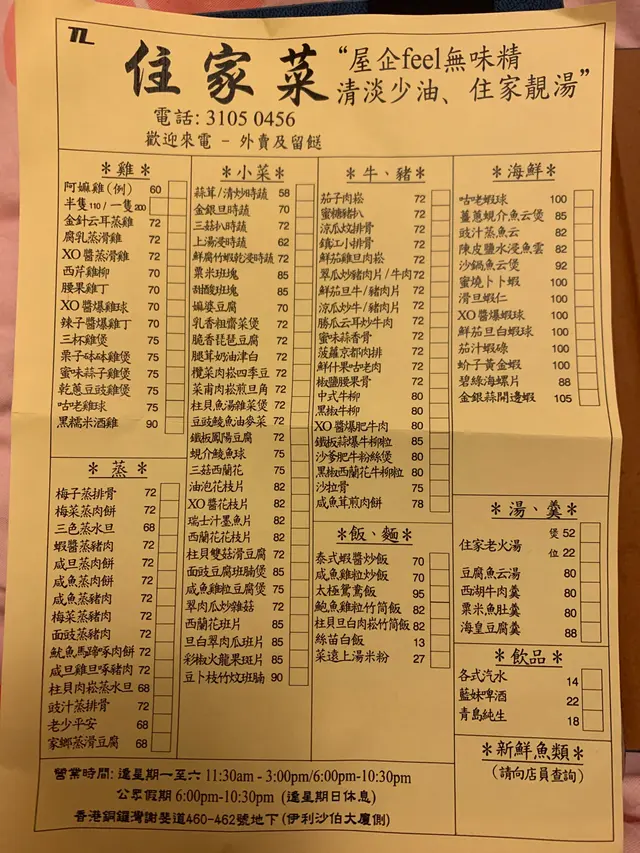 住家菜
“屋企feel無味精
清淡少油、住家靚湯”
電話: 3105 0456
歡迎來電 - 外賣及留餸
*雞*
阿嫲雞(例) 60
半隻110/一隻200
金針云耳蒸雞 72
腐乳蒸滑雞 72
XO醬蒸滑雞 72
西芹雞柳 70
腰果雞丁 70
XO醬爆雞球 70
辣子醬爆雞丁 70
三杯雞煲 75
栗子砵砵雞煲 75
蜜味蒜子雞煲 75
乾蔥豆豉雞煲 75
咕老雞球 75
黑糯米酒雞 90
*蒸*
梅子蒸排骨 72
梅菜蒸肉餅 72
三色蒸水旦 68
蝦醬蒸豬肉 72
咸旦蒸肉餅 72
咸魚蒸肉餅 72
咸魚蒸豬肉 72
梅菜蒸豬肉 72
面豉蒸豬肉 72
魷魚馬蹄啄肉餅 72
咸旦雞旦啄豬肉 72
柱貝肉崧蒸水旦 68
豉汁蒸排骨 72
老少平安 68
家鄉蒸滑豆腐 68
*小菜*
蒜茸/清炒時蔬 58
金銀旦時蔬 70
三菇扒時蔬 72
上湯浸時蔬 62
鮮腐竹蝦乾浸時蔬 72
粟米班塊 85
甜酸班塊 85
嫲婆豆腐 70
乳香粗齋菜煲 72
脆香琵琶豆腐 72
腿茸奶油津白 72
欖菜肉崧四季豆 72
菜甫肉崧煎旦角 72
柱貝魚湯雜菜煲 72
豆豉鯪魚油麥菜 72
鐵板鳳陽豆腐 72
蜆介鯪魚球 75
三菇西蘭花 75
油泡花枝片 82
XO醬花枝片 82
瑞士汁墨魚片 82
西蘭花花枝片 82
柱貝雙菇滑豆腐 72
面豉豆腐班腩煲 85
咸魚雞粒豆腐煲 75
翠肉瓜炒雜菇 72
西蘭花班片 85
旦白翠肉瓜班片 85
彩椒火龍果班片 85
豆卜枝竹炆班腩 90
*牛、豬*
茄子肉崧 72
蜜糖豬扒 72
涼瓜炆排骨 72
鎮江小排骨 72
鮮茄雞旦肉崧 72
翠瓜炒豬肉片/牛肉 72
鮮茄旦牛/豬肉片 72
涼瓜炒牛/豬肉片 72
勝瓜云耳炒牛肉 72
蜜味蒜香骨 72
菠蘿京都肉排 72
鮮什果咕老肉 72
椒鹽腰果骨 72
中式牛柳 80
黑椒牛柳 80
XO醬爆肥牛肉 80
鐵板蒜爆牛柳粒 85
沙爹肥牛粉絲煲 80
黑椒西蘭花牛柳粒 80
沙拉骨 75
咸魚茸煎肉餅 78
*飯、麵*
泰式蝦醬炒飯 70
咸魚雞粒炒飯 70
太極鴛鴦飯 95
鮑魚雞粒竹筒飯 82
柱貝旦白肉崧竹筒飯 82
絲苗白飯 13
菜遠上湯米粉 27
*海鮮*
咕咾蝦球 100
薑蔥蜆介魚云煲 85
豉汁蒸魚云 82
陳皮鹽水浸魚雲 82
沙鍋魚云煲 92
蜜燒卜卜蝦 100
滑旦蝦仁 100
XO醬蝦球 100
鮮茄旦白蝦球 100
茄汁蝦碌 100
蚧子黃金蝦 100
碧綠海螺片 88
金銀蒜開邊蝦 105
*湯、羹*
住家老火湯 煲 52
位 22
豆腐魚云湯 80
西湖牛肉羹 80
粟米魚肚羹 80
海皇豆腐羹 88
*飲品*
各式汽水 14
藍妹啤酒 22
青島純生 18
*新鮮魚類*
(請向店員查詢)
營業時間: 逢星期一至六 11:30am - 3:00pm/6:00pm-10:30pm
公眾假期 6:00pm-10:30pm (逢星期日休息)
香港銅鑼灣謝斐道460-462號地下(伊利沙伯大廈側)